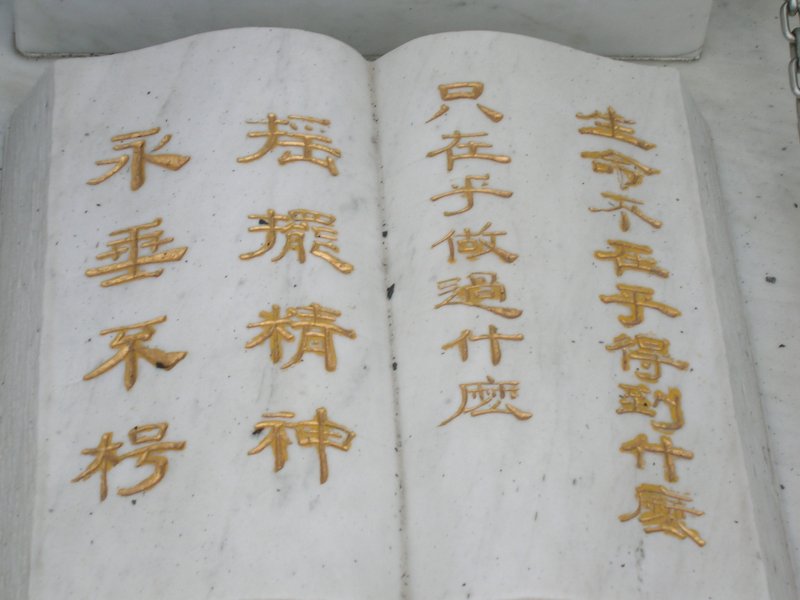 生命不在乎得到什麼
只在乎做過什麼
搖擺精神
永垂不枵